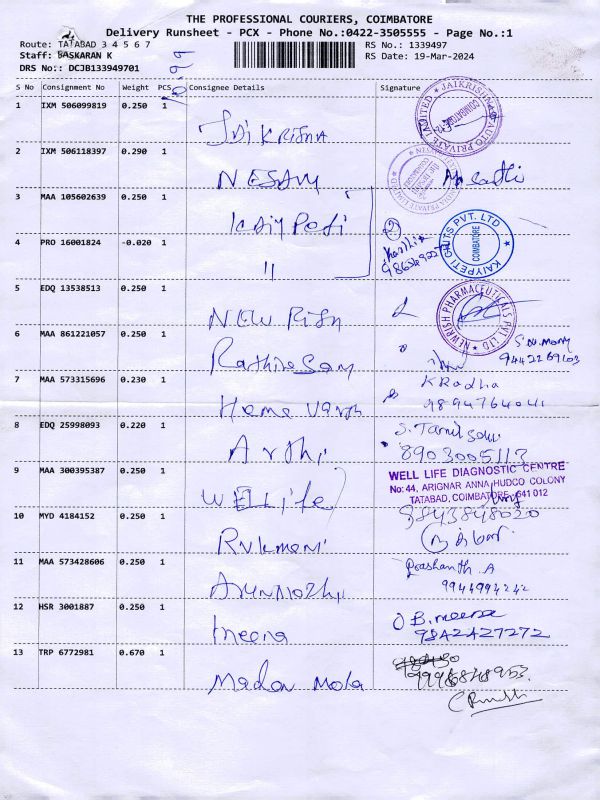 THE PROFESSIONAL COURIERS, COIMBATORE
Delivery Runsheet - PCX - Phone No.:0422-3505555 - Page No.:1
Route: TATABAD 3 4 5 6 7
RS No.: 1339497
Staff: BASKARAN K
RS Date: 19-Mar-2024
DRS No:: DCJB133949701
S No Consignment No Weight PCS Consignee Details Signature
1 IXM 506099819 0.250 1
JAIKRISHNA AUTO PRIVATE LIMITED
COIMBATORE
Jai Krisna
2 IXM 506118397 0.290 1
NESAM
3 MAA 105602639 0.250 1
KAIYPETI GIUTS PVT. LTD
COIMBATORE
2
4 PRO 16001824 -0.020 1
11
5 EDQ 13538513 0.250 1
NEWRISH PHARMACEUTICALS PVT LTD
NEW RISH
6 MAA 861221057 0.250 1
S.N. Mony
9442269103
Rathinasamy
7 MAA 573315696 0.230 1
K Radha
9894764041
Hema Varsh
8 EDQ 25998093 0.220 1
S. Tamil Selvi
8903005113
Arthi
9 MAA 300395387 0.250 1
WELL LIFE DIAGNOSTIC CENTRE
No: 44, ARIGNAR ANNA HUDCO COLONY
TATABAD, COIMBATORE - 641 012
WELLife
10 MYD 4184152 0.250 1
9843848030
Rukmani
11 MAA 573428606 0.250 1
Prashanth. A
9944994242
12 HSR 3001887 0.250 1
B. meera
9342427272
meera
13 TRP 6772981 0.670 1
Madan